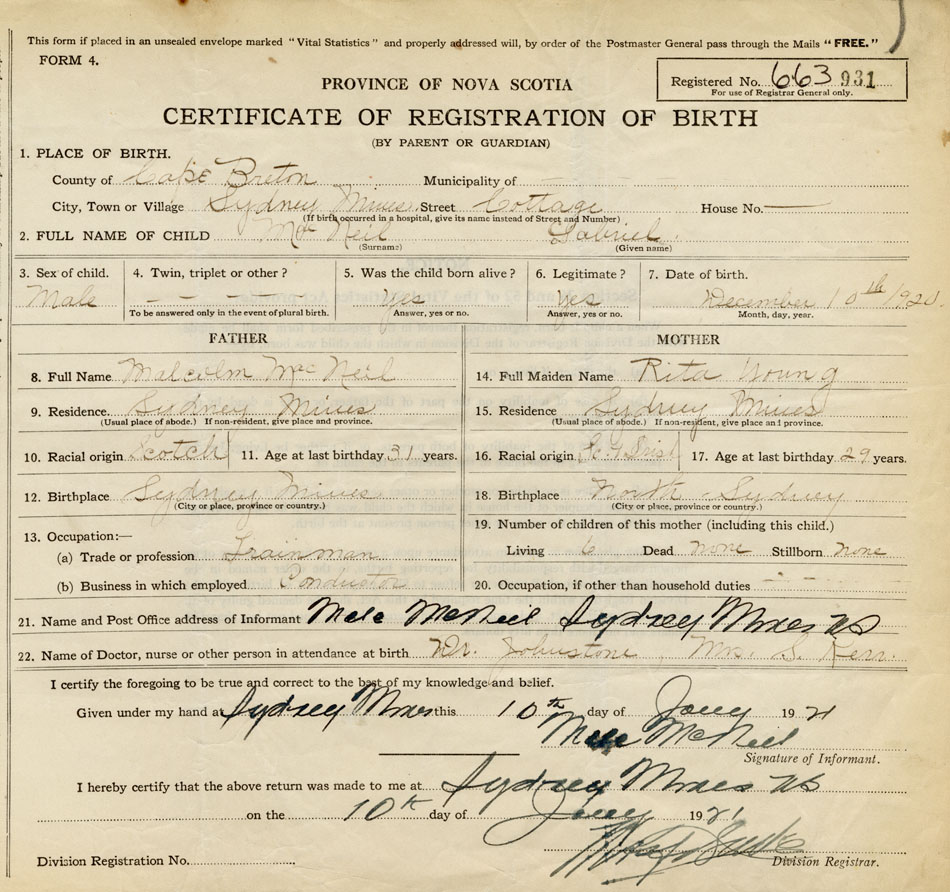 This form if placed in an unsealed envelope marked "Vital Statistics" and properly addressed will, by order of the Postmaster General pass through the Mails "FREE."
FORM 4.
Registered No. 663 931
For use of Registrar General only.
PROVINCE OF NOVA SCOTIA
CERTIFICATE OF REGISTRATION OF BIRTH
(BY PARENT OR GUARDIAN)
1. PLACE OF BIRTH.
County of Cape Breton Municipality of
City, Town or Village Sydney Mines Street Cottage House No. —
(If birth occurred in a hospital, give its name instead of Street and Number)
2. FULL NAME OF CHILD McNeil Gabriel
(Surname) (Given name)
3. Sex of child. 4. Twin, triplet or other? 5. Was the child born alive? 6. Legitimate? 7. Date of birth.
Male - - - Yes Yes December 10th 1920
To be answered only in the event of plural birth. Answer, yes or no. Answer, yes or no. Month, day, year.
FATHER MOTHER
8. Full Name Malcolm McNeil 14. Full Maiden Name Rita Young
9. Residence. Sydney Mines 15. Residence Sydney Mines
(Usual place of abode.) If non-resident, give place and province. (Usual place of abode.) If non-resident, give place and province.
10. Racial origin Scotch 11. Age at last birthday 31 years. 16. Racial origin Irish 17. Age at last birthday 29 years.
12. Birthplace Sydney Mines 18. Birthplace North Sydney
(City or place, province or country.) (City or place, province or country.)
13. Occupation:— 19. Number of children of this mother (including this child.)
(a) Trade or profession Trainman Living 6 Dead none Stillborn none
(b) Business in which employed Conductor 20. Occupation, if other than household duties - - -
21. Name and Post Office address of Informant McNeil Sydney Mines NS
22. Name of Doctor, nurse or other person in attendance at birth Dr. Johnstone, Mrs. S. Kerr.
I certify the foregoing to be true and correct to the best of my knowledge and belief.
Given under my hand at Sydney Mines this 10th day of Jany 1921
McNeil
Signature of Informant.
I hereby certify that the above return was made to me at Sydney Mines NS
on the 10th day of Jany 1921
Division Registration No. Division Registrar.